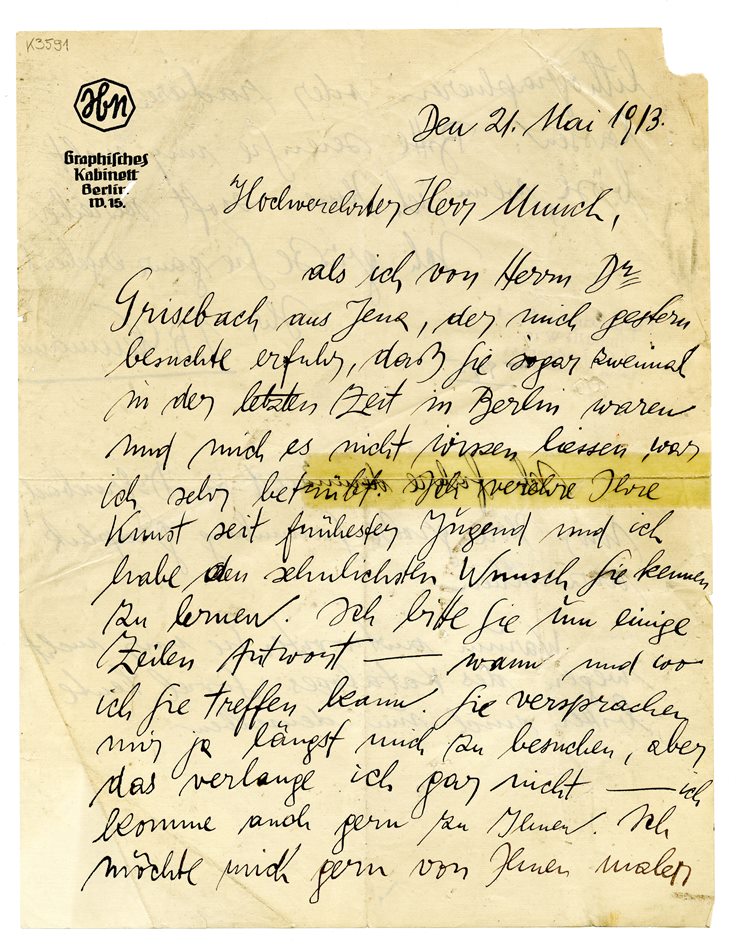 K3591
HBN
Graphisches
Kabinett
Berlin
W. 15.
Den 21. Mai 1913.
Hochverehrter Herr Munch,
als ich von Herrn Dr
Grisebach aus Jena, der mich gestern
besuchte erfuhr, daß Sie sogar zweimal
in der letzten Zeit in Berlin waren
und mich es nicht wissen liessen, war
ich sehr betrübt. Ich verehre Ihre
Kunst seit frühester Jugend und ich
habe den sehnlichsten Wunsch Sie kennen
zu lernen. Ich bitte Sie um einige
Zeilen Antwort — wann und wo
ich Sie treffen kann. Sie versprachen
mir ja längst mich zu besuchen, aber
das verlange ich gar nicht — ich
komme auch gern zu Ihnen. Ich
möchte mich gern von Ihnen malen